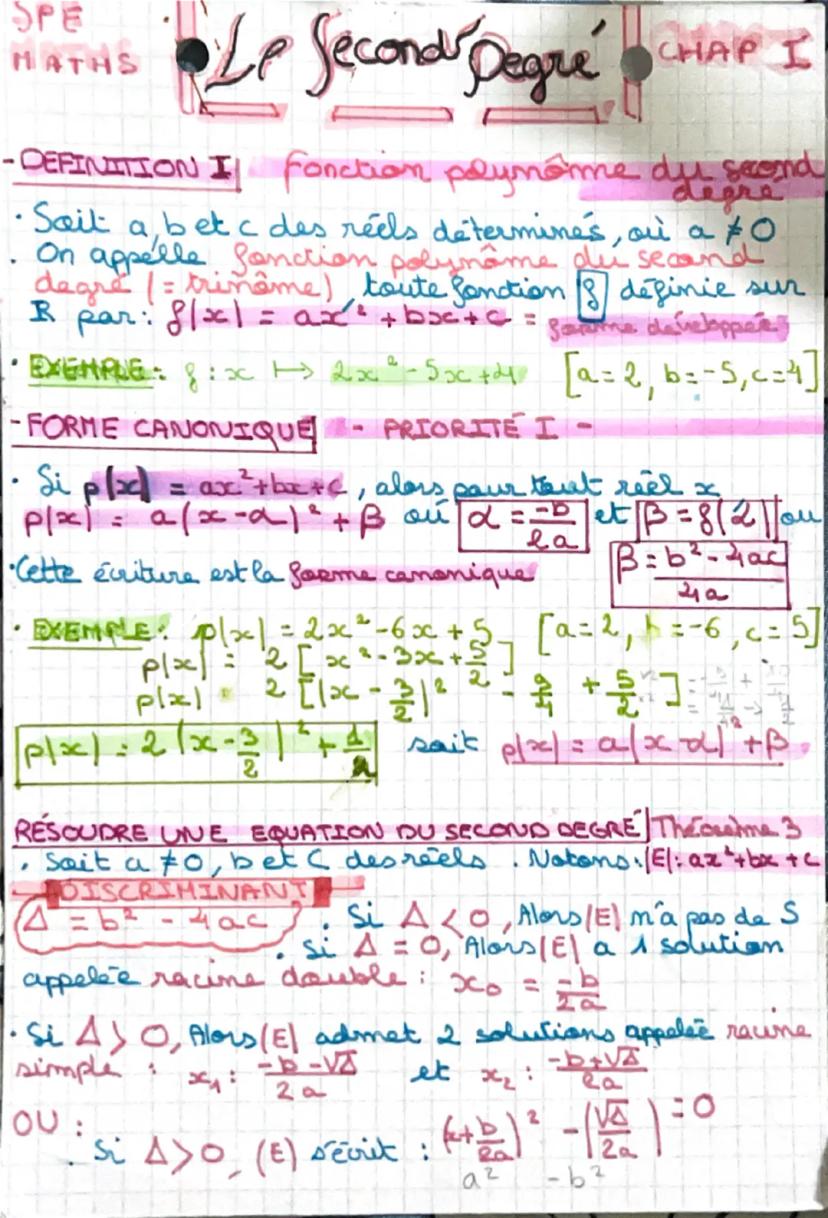 SPE
MATHS
Le Second Degré
CHAP I
- DEFINITION I Fonction polynôme du second
degré
· Soit a, b et c des réels déterminés, où a ≠ 0
. On appelle fonction polynôme du second
degré (= trinôme), toute fonction f définie sur
R par: f(x) = ax² + bx + c = forme développée
· EXEMPLE: f : x ↦ 2x² - 5x + 4 [a = 2, b = -5, c = 4]
- FORME CANONIQUE - PRIORITÉ I -
· Si p(x) = ax² + bx + c, alors pour tout réel x
p(x) = a(x - α)² + β où α = -b/2a et β = f(2) ou
β = b² - 4ac/4a
· Cette écriture est la forme canonique
· EXEMPLE: p(x) = 2x² - 6x + 5 [a = 2, b = -6, c = 5]
p(x) = 2 [x² - 3x + 5/2]
p(x) = 2 [(x - 3/2)² - 9/4 + 5/2]
p(x) = 2(x - 3/2)² + 1/2 soit p(x) = a(x - α)² + β
RÉSOUDRE UNE EQUATION DU SECOND DEGRÉ Théorème 3
. Soit a ≠ 0, b et C des réels. Notons: (E): ax² + bx + c
DISCRIMINANT
Δ = b² - 4ac . Si Δ < 0, Alors (E) n'a pas de S
. Si Δ = 0, Alors (E) a 1 solution
appelée racine double : x₀ = -b/2a
· Si Δ > 0, Alors (E) admet 2 solutions appelée racine
simple : x₁ : -b - √Δ/2a et x₂ : -b + √Δ/2a
OU :
. Si Δ > 0, (E) s'écrit : (x + b/2a)² - (√Δ/2a) = 0
a² - b²